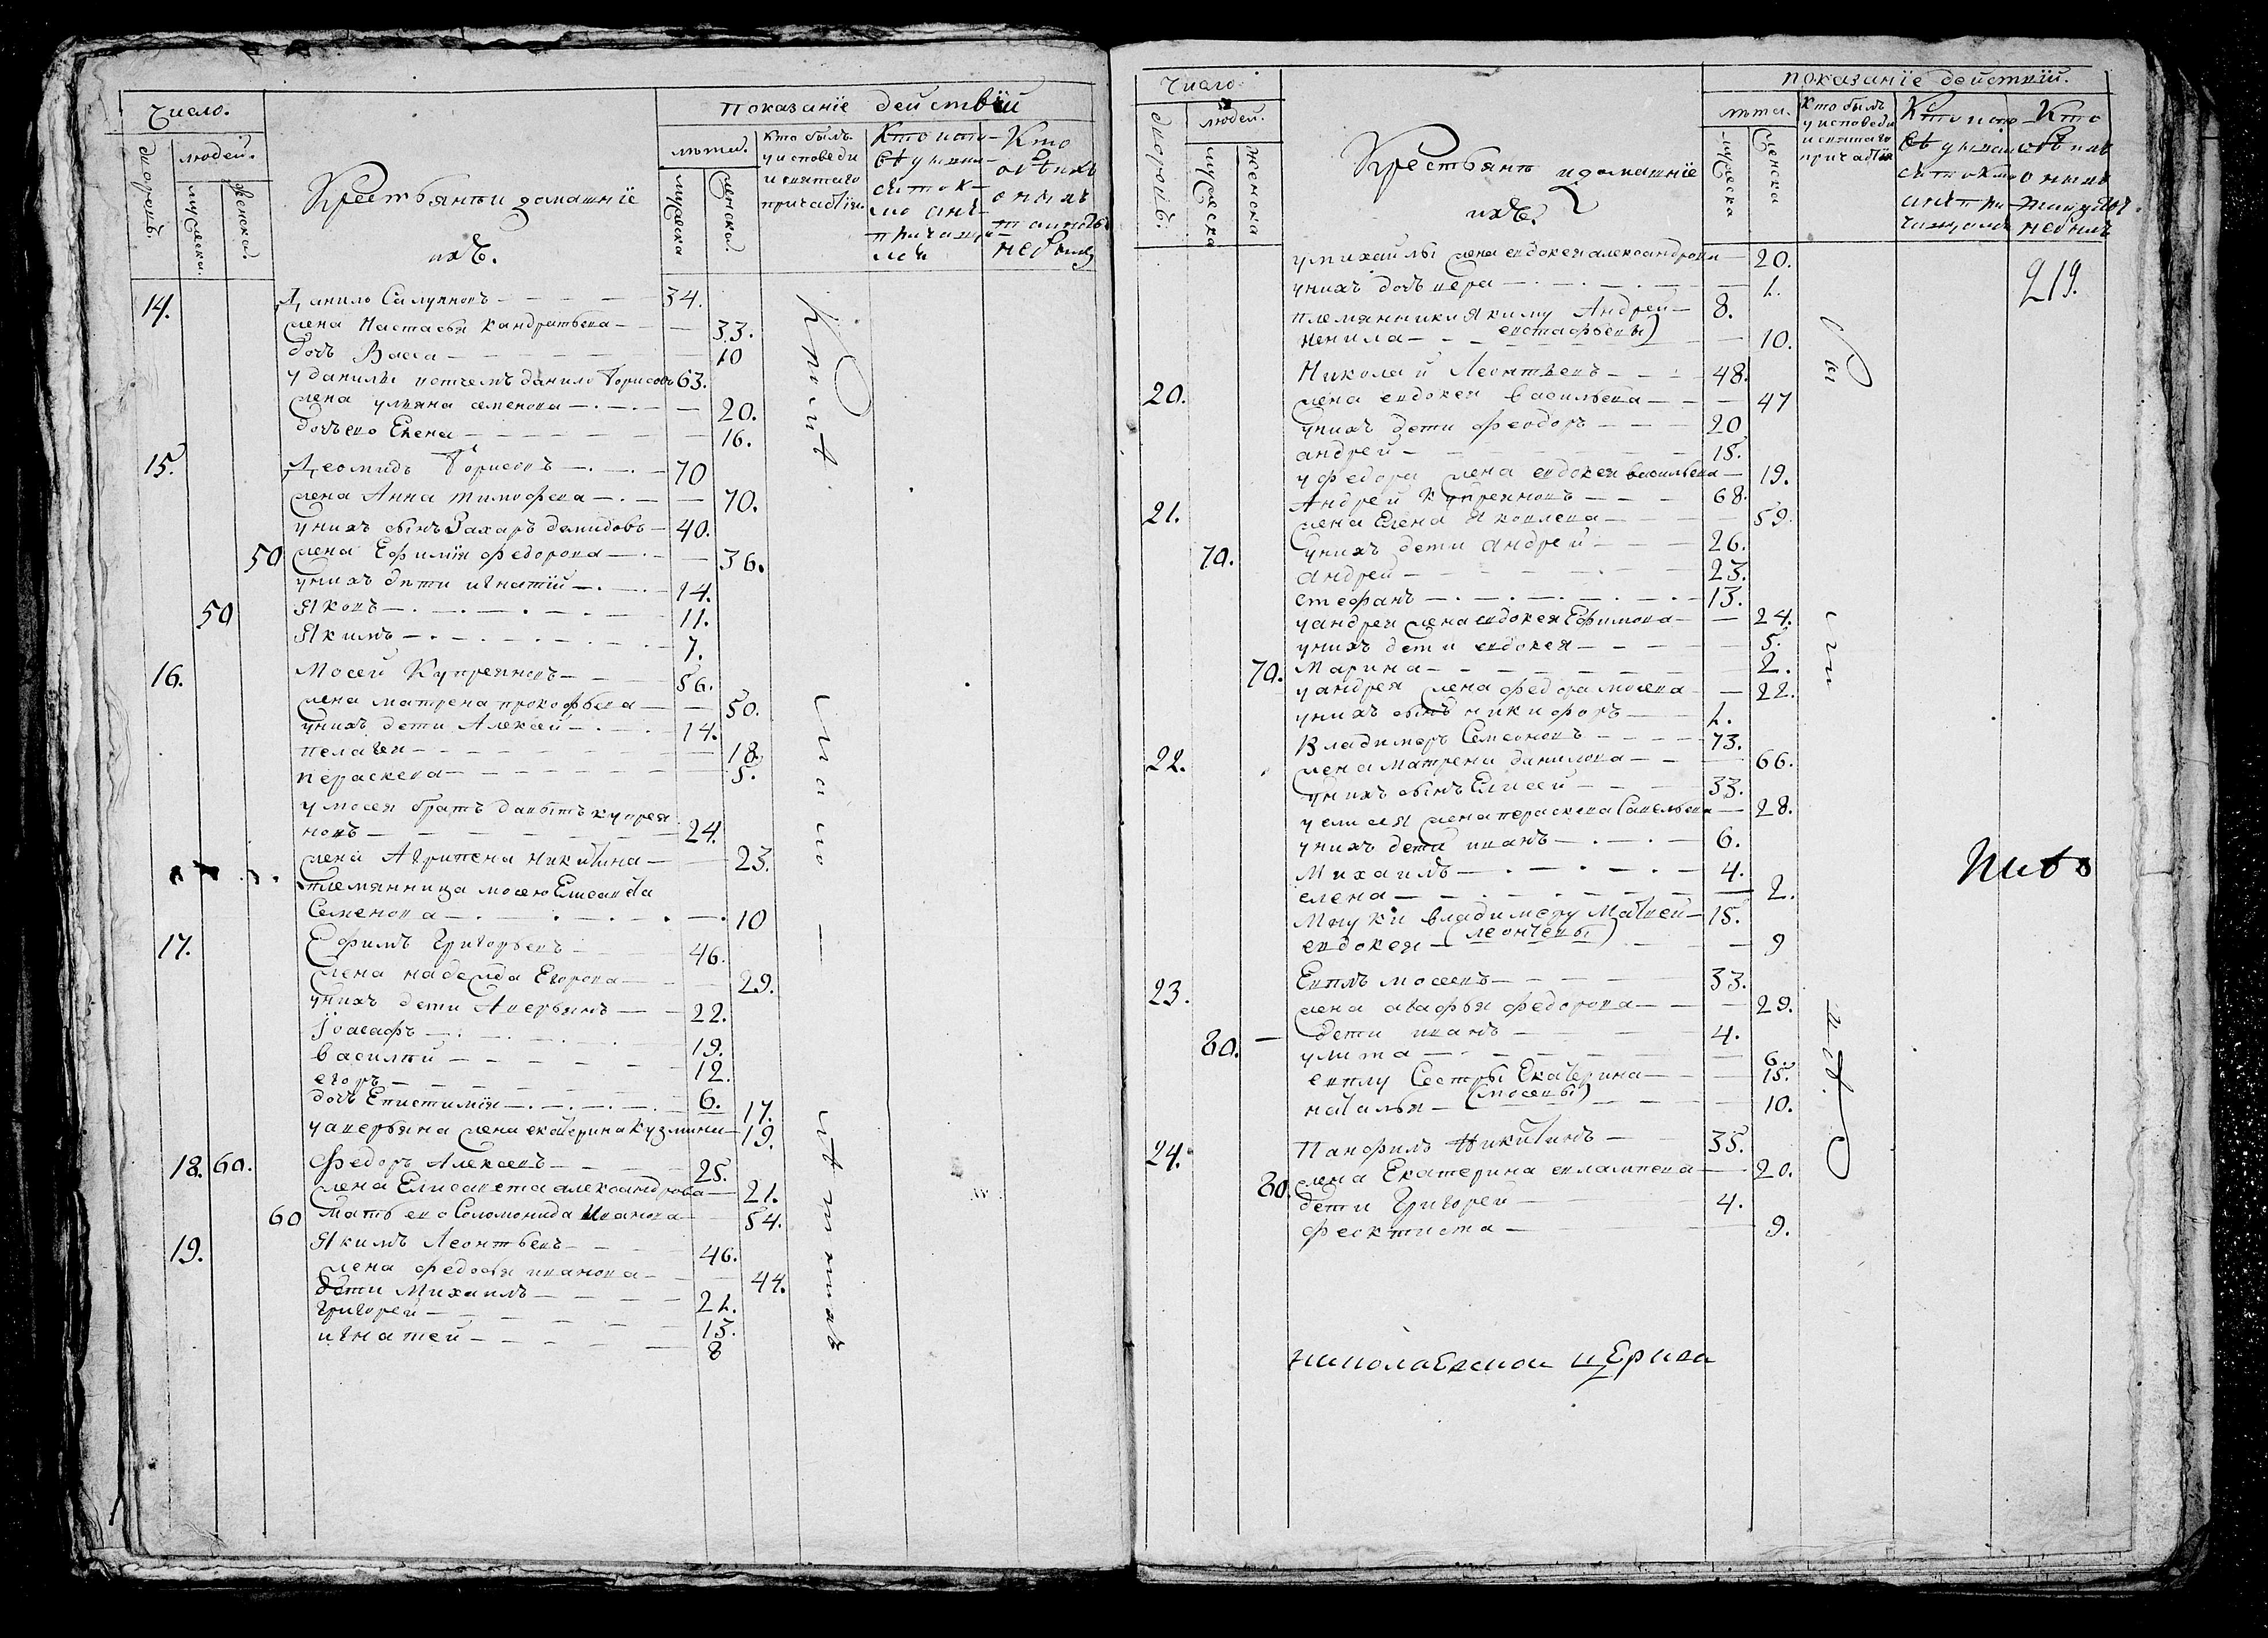 Число.
Показанїе действїи
дворовъ.
людеи.
мужеска.
женска.
Крестьяне и домашнїе
ихъ.
лѣта.
мужеска
женска.
Кто былъ
у исповеди
и святаго
причастїя.
14. Данило Салуяновъ 34.
жена Настасья Кандратьева 33.
дочь Васса 10
у данилы вотчемъ данило борисовъ 63.
жена ульяна семенова 20.
дочь ево Елена 16.
15. Деомидъ борисовъ 70
жена Анна тимофеева 70.
у нихъ сынъ Захаръ демидовъ 40.
50 жена Ефимїя федорова 36.
у нихъ дети игнатїи 14.
50 Яковъ 11.
Якимъ 7.
16. Мосеи Купреяновъ 56.
жена матрена прокофьева 50.
у нихъ дети Алексеи 14.
пелагея 18.
параскева 5.
у мосея братъ давыдъ купрея
новъ 24.
жена Агрипена никитина 23.
племянница мосею Елисавета
Семенова 10
17. Ефимъ Григорьевъ 46.
жена надежда Егорова 29.
у нихъ дети Аверьянъ 22.
Iоасафъ 19.
василеи 12.
егоръ 6.
дочь Епистимїя 17.
у аверьяна жена екатерина кузмина 19.
18. 60. Федоръ Алексеевъ 25.
жена Елисавета александрова 21.
60 мать ево Соломонида Иванова 54.
19. Якимъ Леонтьевъ 46.
жена федосья иванова 44.
дети Михаилъ 21.
Григореи 13.
игнатеи 8
Число.
показанїе действїи.
дворовъ.
людеи.
мужеска
женска
Крестьяне и домашнїе
ихъ.
лѣта.
мужеска
женска
Кто былъ
у исповеди
и святаго
причастїя
219.
у михаилы жена евдокея александрова 20.
у нихъ дочь вера 1.
племянники Якиму Андреи 8.
ненила евстафьевы) 10.
20. Николаи Леонтьевъ 48.
жена евдокея васильева 47
у нихъ дети феодоръ 20
андреи 15.
у федора жена евдокея васильева 19.
21. Андреи Купреяновъ 68.
жена Елена Яковлева 59.
70. у нихъ дети андреи 26.
андреи 23.
стефанъ 13.
у андрея жена евдокея Ефимова 24.
у нихъ дети евдокея 5.
70. Марина 2.
у андрея жена федора мосеева 22.
у нихъ сынъ никифоръ 1.
22. Владимеръ Семеоновъ 73.
жена матрена данилова 66.
у нихъ сынъ Елисеи 33.
у елисея жена параскева Савельева 28.
у нихъ дети иванъ 6.
Михаилъ 4.
елена 2.
Мнуки владимеру Матвеи 15.
евдокея (леонтевы) 9
23. Евплъ мосеевъ 33.
жена агафья федорова 29.
80. дети иванъ 4.
улита 6.
евплу Сестры Екатерина 15.
наталья (мосевы) 10.
24. Панфилъ Никитинъ 35.
80. жена Екатерина евлампева 20.
дети Григореи 4.
феоктиста 9.
николаевскои церкви